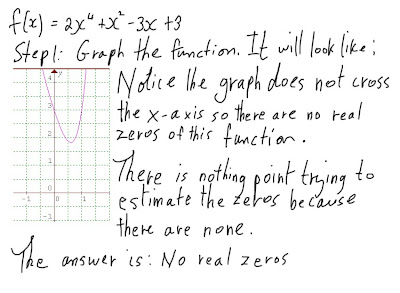 f(x) = 2x⁴ + x² - 3x + 3
Step 1: Graph the function. It will look like:
Notice the graph does not cross
the x-axis so there are no real
zeros of this function.
There is nothing point trying to
estimate the zeros because
there are none.
The answer is: No real zeros
4 y
3
2
1
0
-1
-1 0 1